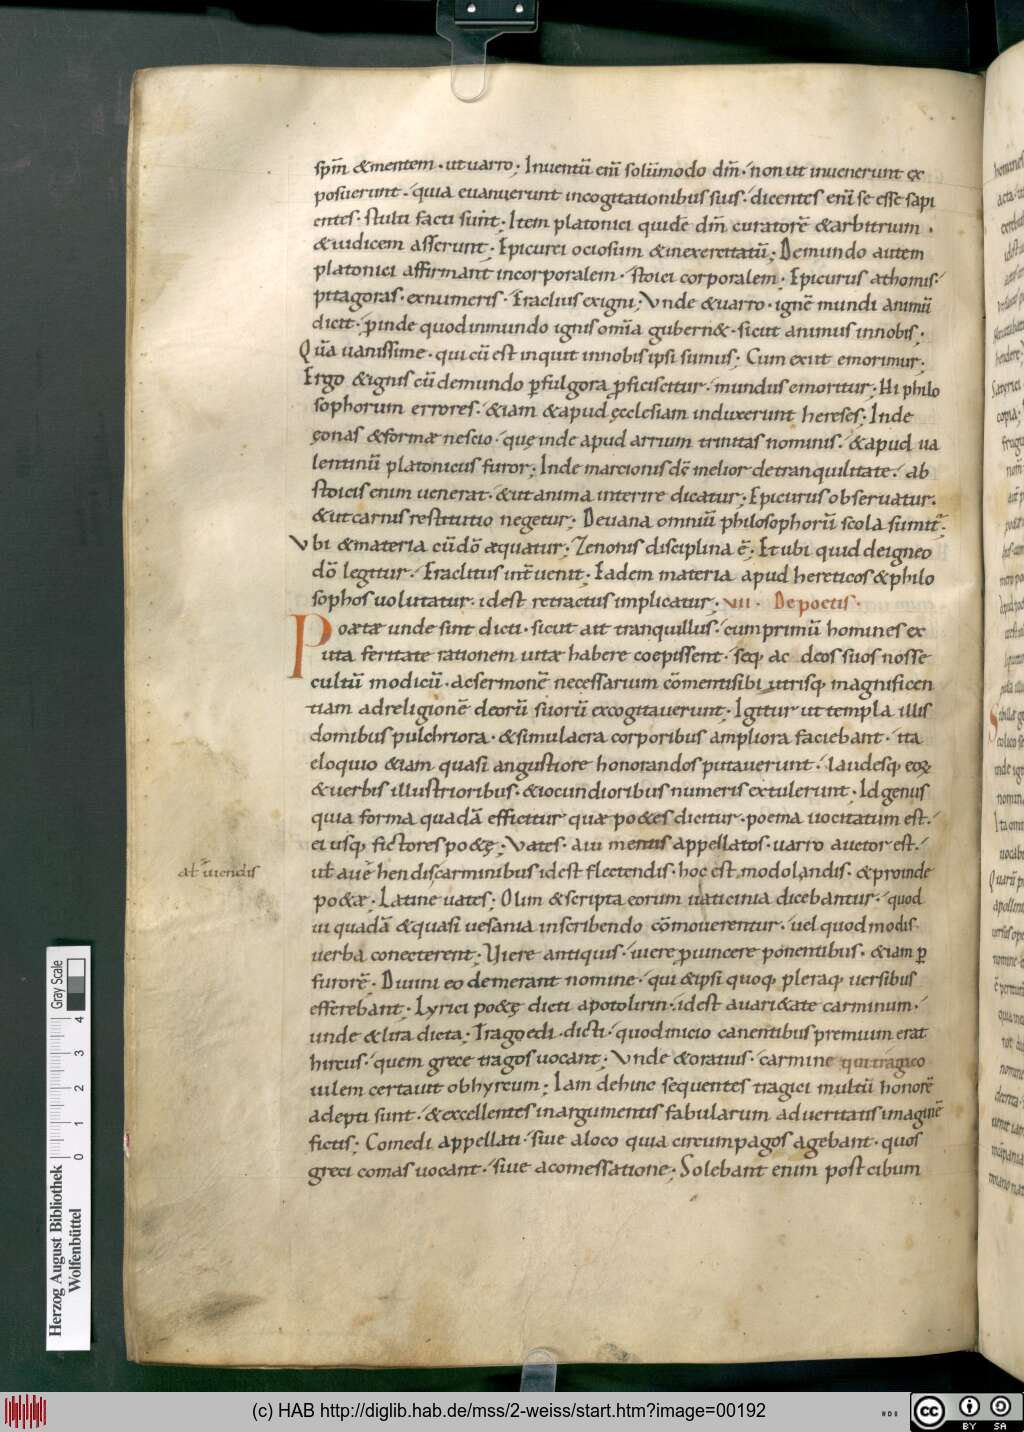 spm̄ & mentem · ut uarro; Inuentū enī solūmodo dm̄ · non ut inuenerunt ex
posuerunt · quia euanuerunt in cogitationibus suis · dicentes enī se esse sapi
entes · stulti facti sunt; Item platonici quidē dm̄ curatorē & arbitrium ·
& iudicem asserunt; Epicurei ociosum & inexercitatū; De mundo autem
platonici affirmant incorporalem · stoici corporalem; Epicurus athomis ·
pitagoras · ex numeris · Eraclius ex igni; Vnde & uarro · ignē mundi animū
dicit · ꝓinde quod in mundo ignis om̄ia gubern& · sicut animus in nobis;
Quā uanissime · qui cū est inquit in nobis ipsi sumus; Cum exiit emorimur;
Ergo & ignis cū de mundo ꝑ fulgora ꝓficiscitur · mundus emoritur; Hi philo
sophorum errores · &iam & apud ęcclesiam induxerunt hereses; Inde
ęonas & formæ nescio · quę inde apud arrium trinitas nominis · & apud ua
lentinū platonicus furor; Inde marcionis dē melior de tranquilitate · ab
stoicis enim uenerat · & ut anima interire dicatur; Epicurus obseruatur ·
& ut carnis restitutio negetur; De uana omniū philosophorū scola sumit̄;
Vbi & materia cū dō æquatur; Zenonis disciplina ē; Et ubi quid de igneo
dō legitur · Eraclitus int̄uenit; Eadem materia apud hereticos & philo
sophos uolutatur · idest retractus implicatur; VII · De poetis ·
Poætæ unde sint dicti · sicut ait tranquillus · cum primū homines ex
uita feritate rationem uitæ habere coepissent · seq; ac deos suos nosse
cultū modicū · ac sermonē necessarium cōmenti sibi utrisq; magnificen
tiam ad religionē deorū suorū excogitauerunt; Igitur ut templa illis
domibus pulchriora · & simulacra corporibus ampliora faciebant · ita
eloquio &iam quasi angustiore honorandos putauerunt · laudesq; eoꝝ
& uerbis illustrioribus · & iocundioribus numeris extulerunt; Id genus
quia forma quadā efficitur quæ po&es dicitur · poema uocitatum est ·
ei usq; fictores po&ę; Vates · a ui mentis appellatos · uarro auctor est ·
at̄ uiendis
ut̄ auē hendis carminibus idest flectendis · hoc est modolandis · & proinde
po&æ · Latine uates; Olim & scripta eorum uaticinia dicebantur · quod
ui quadā & quasi uesania in scribendo cōmouerentur · uel quod modis
uerba conecterent; Viere antiquis · uiere ꝓ uincere ponentibus · &iam ꝑ
furorē; Diuini eodem erant nomine · qui & ipsi quoq; pleraq; uersibus
efferebant; Lyrici po&ę dicti apotolirin · idest a uari&ate carminum ·
unde & lira dicta; Tragoedi · dicti · quod inicio canentibus premium erat
hircus · quem grece tragos uocant; Vnde & oratius · carmine qui tragico
uilem certauit ob hyrcum; Iam dehinc sequentes tragici multū honorē
adepti sunt · & excellentes in argumentis fabularum ad ueritatis imaginē
fictis; Comedi appellati · siue a loco quia circum pagos agebant · quos
greci comas uocant · siue a comessatione; Solebant enim post cibum
Herzog August Bibliothek
Wolfenbüttel
0 1 2 3 4
Gray Scale
(c) HAB http://diglib.hab.de/mss/2-weiss/start.htm?image=00192
cc
BY SA